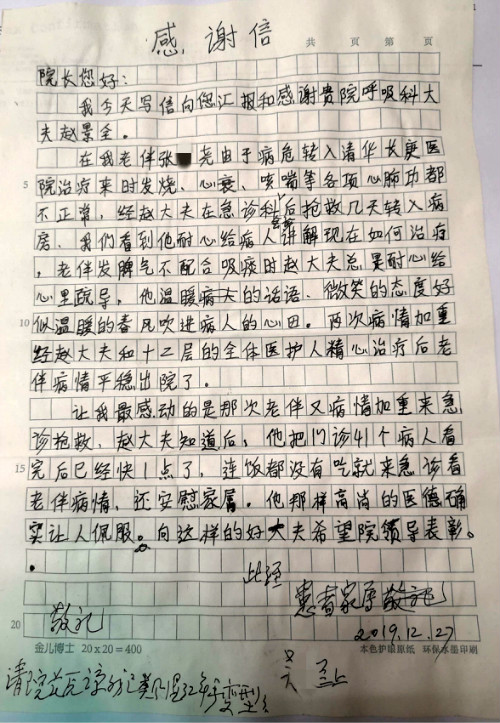 感谢信
共 页 第 页
院长您好:
我今天写信向您汇报和感谢贵院呼吸科大
夫赵景全。
在我老伴张 尧由于病危转入清华长庚医
5
院治疗来时发烧、心衰、咳喘等各项心肺功都
不正常,经赵大夫在急诊科后抢救几天转入病
房、我们看到他耐心给病人讲解现在如何治疗
,老伴发脾气不配合吸痰时赵大夫总是耐心给
心里疏导,他温暖病大的话语、微笑的态度好
10
似温暖的春风吹进病人的心田。两次病情加重
经赵大夫和十二层的全体医护人精心治疗后老
伴病情平稳出院了。
让我最感动的是那次老伴又病情加重来急
诊抢救、赵大夫知道后,他把门诊41个病人看
15
完后已经快1点了,连饭都没有吃就来急诊看
老伴病情,还安慰家属。他那样高尚的医德确
实让人佩服。向这样的好大夫希望院领导表彰。
此致
患者家属敬礼
敬礼
20
2019.12.27
金儿博士 20x20=400
本色护眼原纸 环保水墨印刷